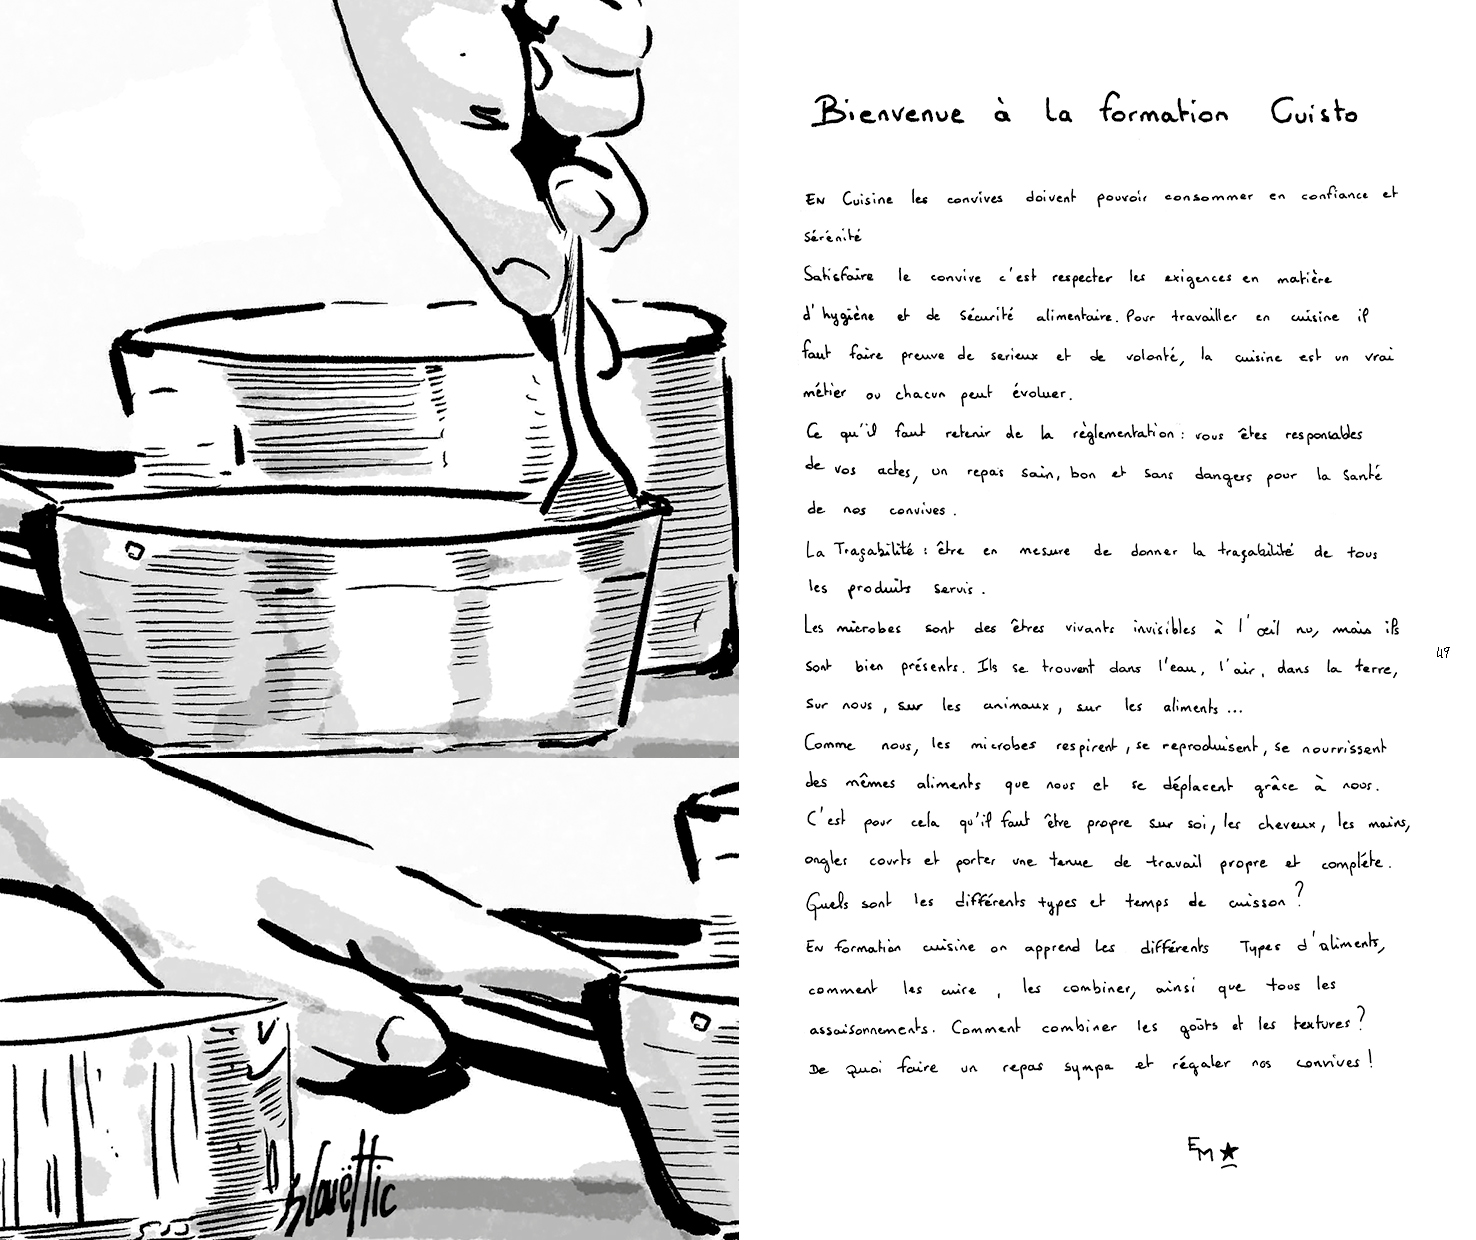 Bienvenue à la formation Cuisto
EN Cuisine les convives doivent pouvoir consommer en confiance et
Sérénité
Satisfaire le convive c'est respecter les exigences en matière
d'hygiène et de sécurité alimentaire. Pour travailler en cuisine il
faut faire preuve de serieux et de volonté, la cuisine est un vrai
métier ou chacun peut évoluer.
Ce qu'il faut retenir de la règlementation : vous êtes responsables
de vos actes, un repas sain, bon et sans dangers pour la santé
de nos convives.
La Traçabilité : être en mesure de donner la traçabilité de tous
les produits servis.
Les microbes sont des êtres vivants invisibles à l'œil nu, mais ils
sont bien présents. Ils se trouvent dans l'eau, l'air, dans la terre,
Sur nous, sur les animaux, sur les aliments...
Comme nous, les microbes respirent, se reproduisent, se nourrissent
des mêmes aliments que nous et se déplacent grâce à nous.
C'est pour cela qu'il faut être propre sur soi, les cheveux, les mains,
ongles courts et porter une tenue de travail propre et complète.
Quels sont les différents types et temps de cuisson ?
En formation cuisine on apprend les différents Types d'aliments,
comment les cuire, les combiner, ainsi que tous les
assaisonnements. Comment combiner les goûts et les textures ?
De quoi faire un repas sympa et régaler nos convives !
EM
49
blouëttic